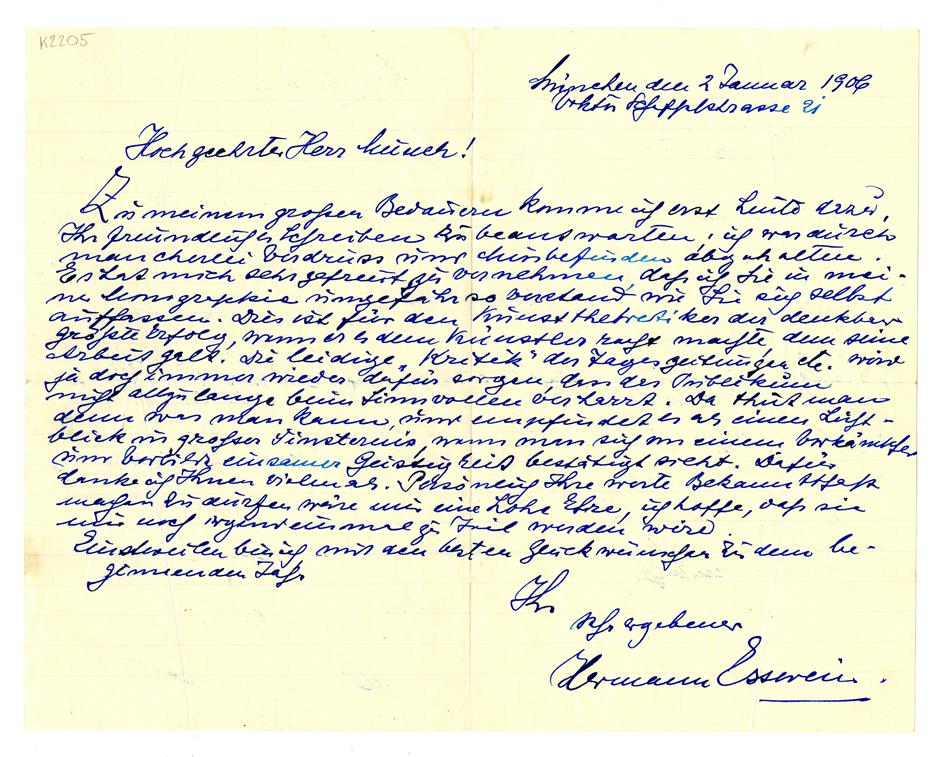 K2205
München den 2 Januar 1906
Viktor Scheffelstrasse 21
Hochgeehrter Herr Munch!
Zu meinem großen Bedauern komme ich erst heute dazu,
Ihr freundliches Schreiben zu beantworten; ich war durch
mancherlei Verdruss und Missbefinden abgehalten.
Es hat mich sehr gefreut zu vernehmen, daß ich Sie in mei-
ner Monographie ungefähr so verstand, wie Sie sich selbst
auffassen. Dies ist für den Kunsttheoretiker der denkbar
größte Erfolg, wenn er es dem Künstler recht machte, dem seine
Arbeit galt. Die leidige „Kritik“ der Tageszeitungen etc. wird
ja doch immer wieder dafür sorgen, dass das Publikum
nicht allzulange beim Sinnvollen verharrt. Da thut man
denn was man kann, und empfindet es als einen Licht-
blick in großer Finsternis, wenn man sich von einem Vorkämpfer
und Vorbild einsamer Geistigkeit bestätigt sieht. Dafür
danke ich Ihnen vielmals. Persönlich Ihre werte Bekanntschaft
machen zu dürfen wäre mir eine hohe Ehre, ich hoffe, daß sie
mir noch irgend einmal zu Teil werden wird.
Einstweilen bin ich mit den besten Glückwünschen zu dem be-
ginnenden Jahr
Ihr
sehr ergebener
Hermann Esswein.